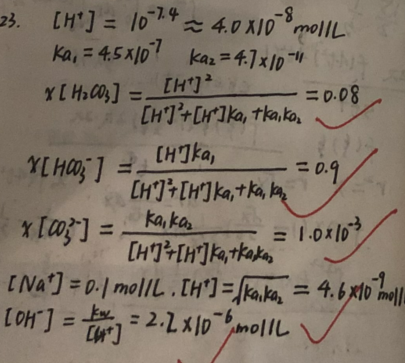 23. [H⁺] = 10^-7.4 ≈ 4.0×10^-8 mol/L
Ka₁ = 4.5×10^-7 Ka₂ = 4.7×10^-11
x[H₂CO₃] = [H⁺]² / ([H⁺]²+[H⁺]Ka₁+Ka₁Ka₂) = 0.08
x[HCO₃⁻] = [H⁺]Ka₁ / ([H⁺]²+[H⁺]Ka₁+Ka₁Ka₂) = 0.9
x[CO₃²⁻] = Ka₁Ka₂ / ([H⁺]²+[H⁺]Ka₁+Ka₁Ka₂) = 1.0×10^-3
[Na⁺] = 0.1 mol/L . [H⁺] = √(Ka₁Ka₂) = 4.6×10^-9 mol/
[OH⁻] = Kw / [H⁺] = 2.2×10^-6 mol/L